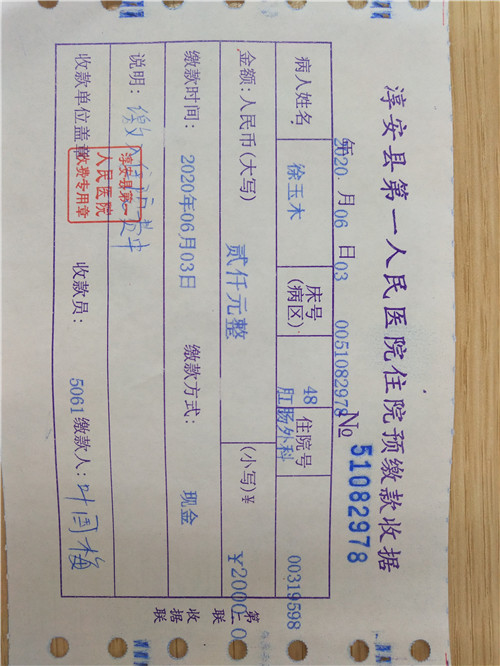 淳安县第一人民医院住院预缴款收据
2020年 06月 03日 0051082978 № 51082978
病人姓名 徐玉木 床号(病区) 48 肛肠外科 住院号 00319598
金额:人民币(大写) 贰仟元整 (小写)¥ ¥2000.0
缴款时间: 2020年06月03日 缴款方式: 现金
说明:缴入住院费中
收款单位盖章 收款员: 5061 缴款人:叶国梅
淳安县第一
人民医院
收费专用章
第二联
收据联